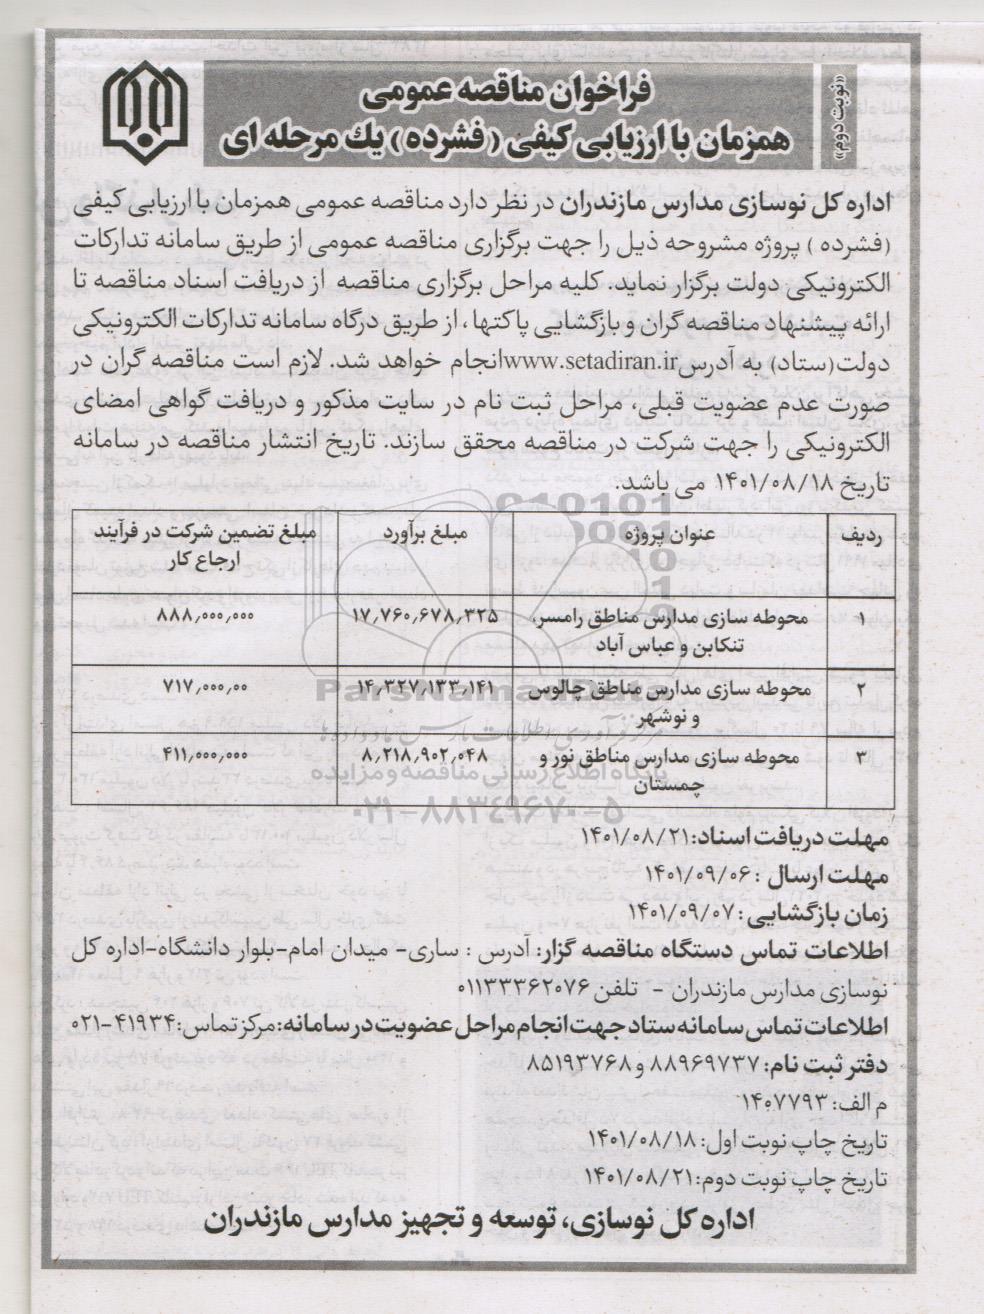 «نوبت دوم»
فراخوان مناقصه عمومی
همزمان با ارزیابی کیفی (فشرده) یک مرحله ای
اداره کل نوسازی مدارس مازندران در نظر دارد مناقصه عمومی همزمان با ارزیابی کیفی
(فشرده ) پروژه مشروحه ذیل را جهت برگزاری مناقصه عمومی از طریق سامانه تدارکات
الکترونیکی دولت برگزار نماید. کلیه مراحل برگزاری مناقصه از دریافت اسناد مناقصه تا
ارائه پیشنهاد مناقصه گران و بازگشایی پاکتها، از طریق درگاه سامانه تدارکات الکترونیکی
دولت(ستاد) به آدرس www.setadiran.ir انجام خواهد شد. لازم است مناقصه گران در
صورت عدم عضویت قبلی، مراحل ثبت نام در سایت مذکور و دریافت گواهی امضای
الکترونیکی را جهت شرکت در مناقصه محقق سازند. تاریخ انتشار مناقصه در سامانه
تاریخ ۱۴۰۱/۰۸/۱۸ می باشد.
ردیف عنوان پروژه مبلغ برآورد مبلغ تضمین شرکت در فرآیند
ارجاع کار
۱ محوطه سازی مدارس مناطق رامسر، ۱۷,۷۶۰,۶۷۸,۳۲۵ ۸۸۸,۰۰۰,۰۰۰
تنکابن و عباس آباد
۲ محوطه سازی مدارس مناطق چالوس ۱۴,۳۲۷,۱۳۳,۱۴۱ ۷۱۷,۰۰۰,۰۰
و نوشهر
۳ محوطه سازی مدارس مناطق نور و ۸,۲۱۸,۹۰۲,۰۴۸ ۴۱۱,۰۰۰,۰۰۰
چمستان
ParsNamadData
پایگاه اطلاع رسانی مناقصه و مزایده
۰۲۱-۸۸۳۴۹۶۷۰-۵
مهلت دریافت اسناد:۱۴۰۱/۰۸/۲۱
مهلت ارسال :۱۴۰۱/۰۹/۰۶
زمان بازگشایی: ۱۴۰۱/۰۹/۰۷
اطلاعات تماس دستگاه مناقصه گزار: آدرس : ساری- میدان امام-بلوار دانشگاه-اداره کل
نوسازی مدارس مازندران - تلفن ۰۱۱۳۳۳۶۲۰۷۶
اطلاعات تماس سامانه ستاد جهت انجام مراحل عضویت در سامانه:مرکز تماس:۴۱۹۳۴-۰۲۱
دفتر ثبت نام: ۸۸۹۶۹۷۳۷ و ۸۵۱۹۳۷۶۸
م الف: ۱۴۰۷۷۹۳
تاریخ چاپ نوبت اول: ۱۴۰۱/۰۸/۱۸
تاریخ چاپ نوبت دوم:۱۴۰۱/۰۸/۲۱
اداره کل نوسازی، توسعه و تجهیز مدارس مازندران